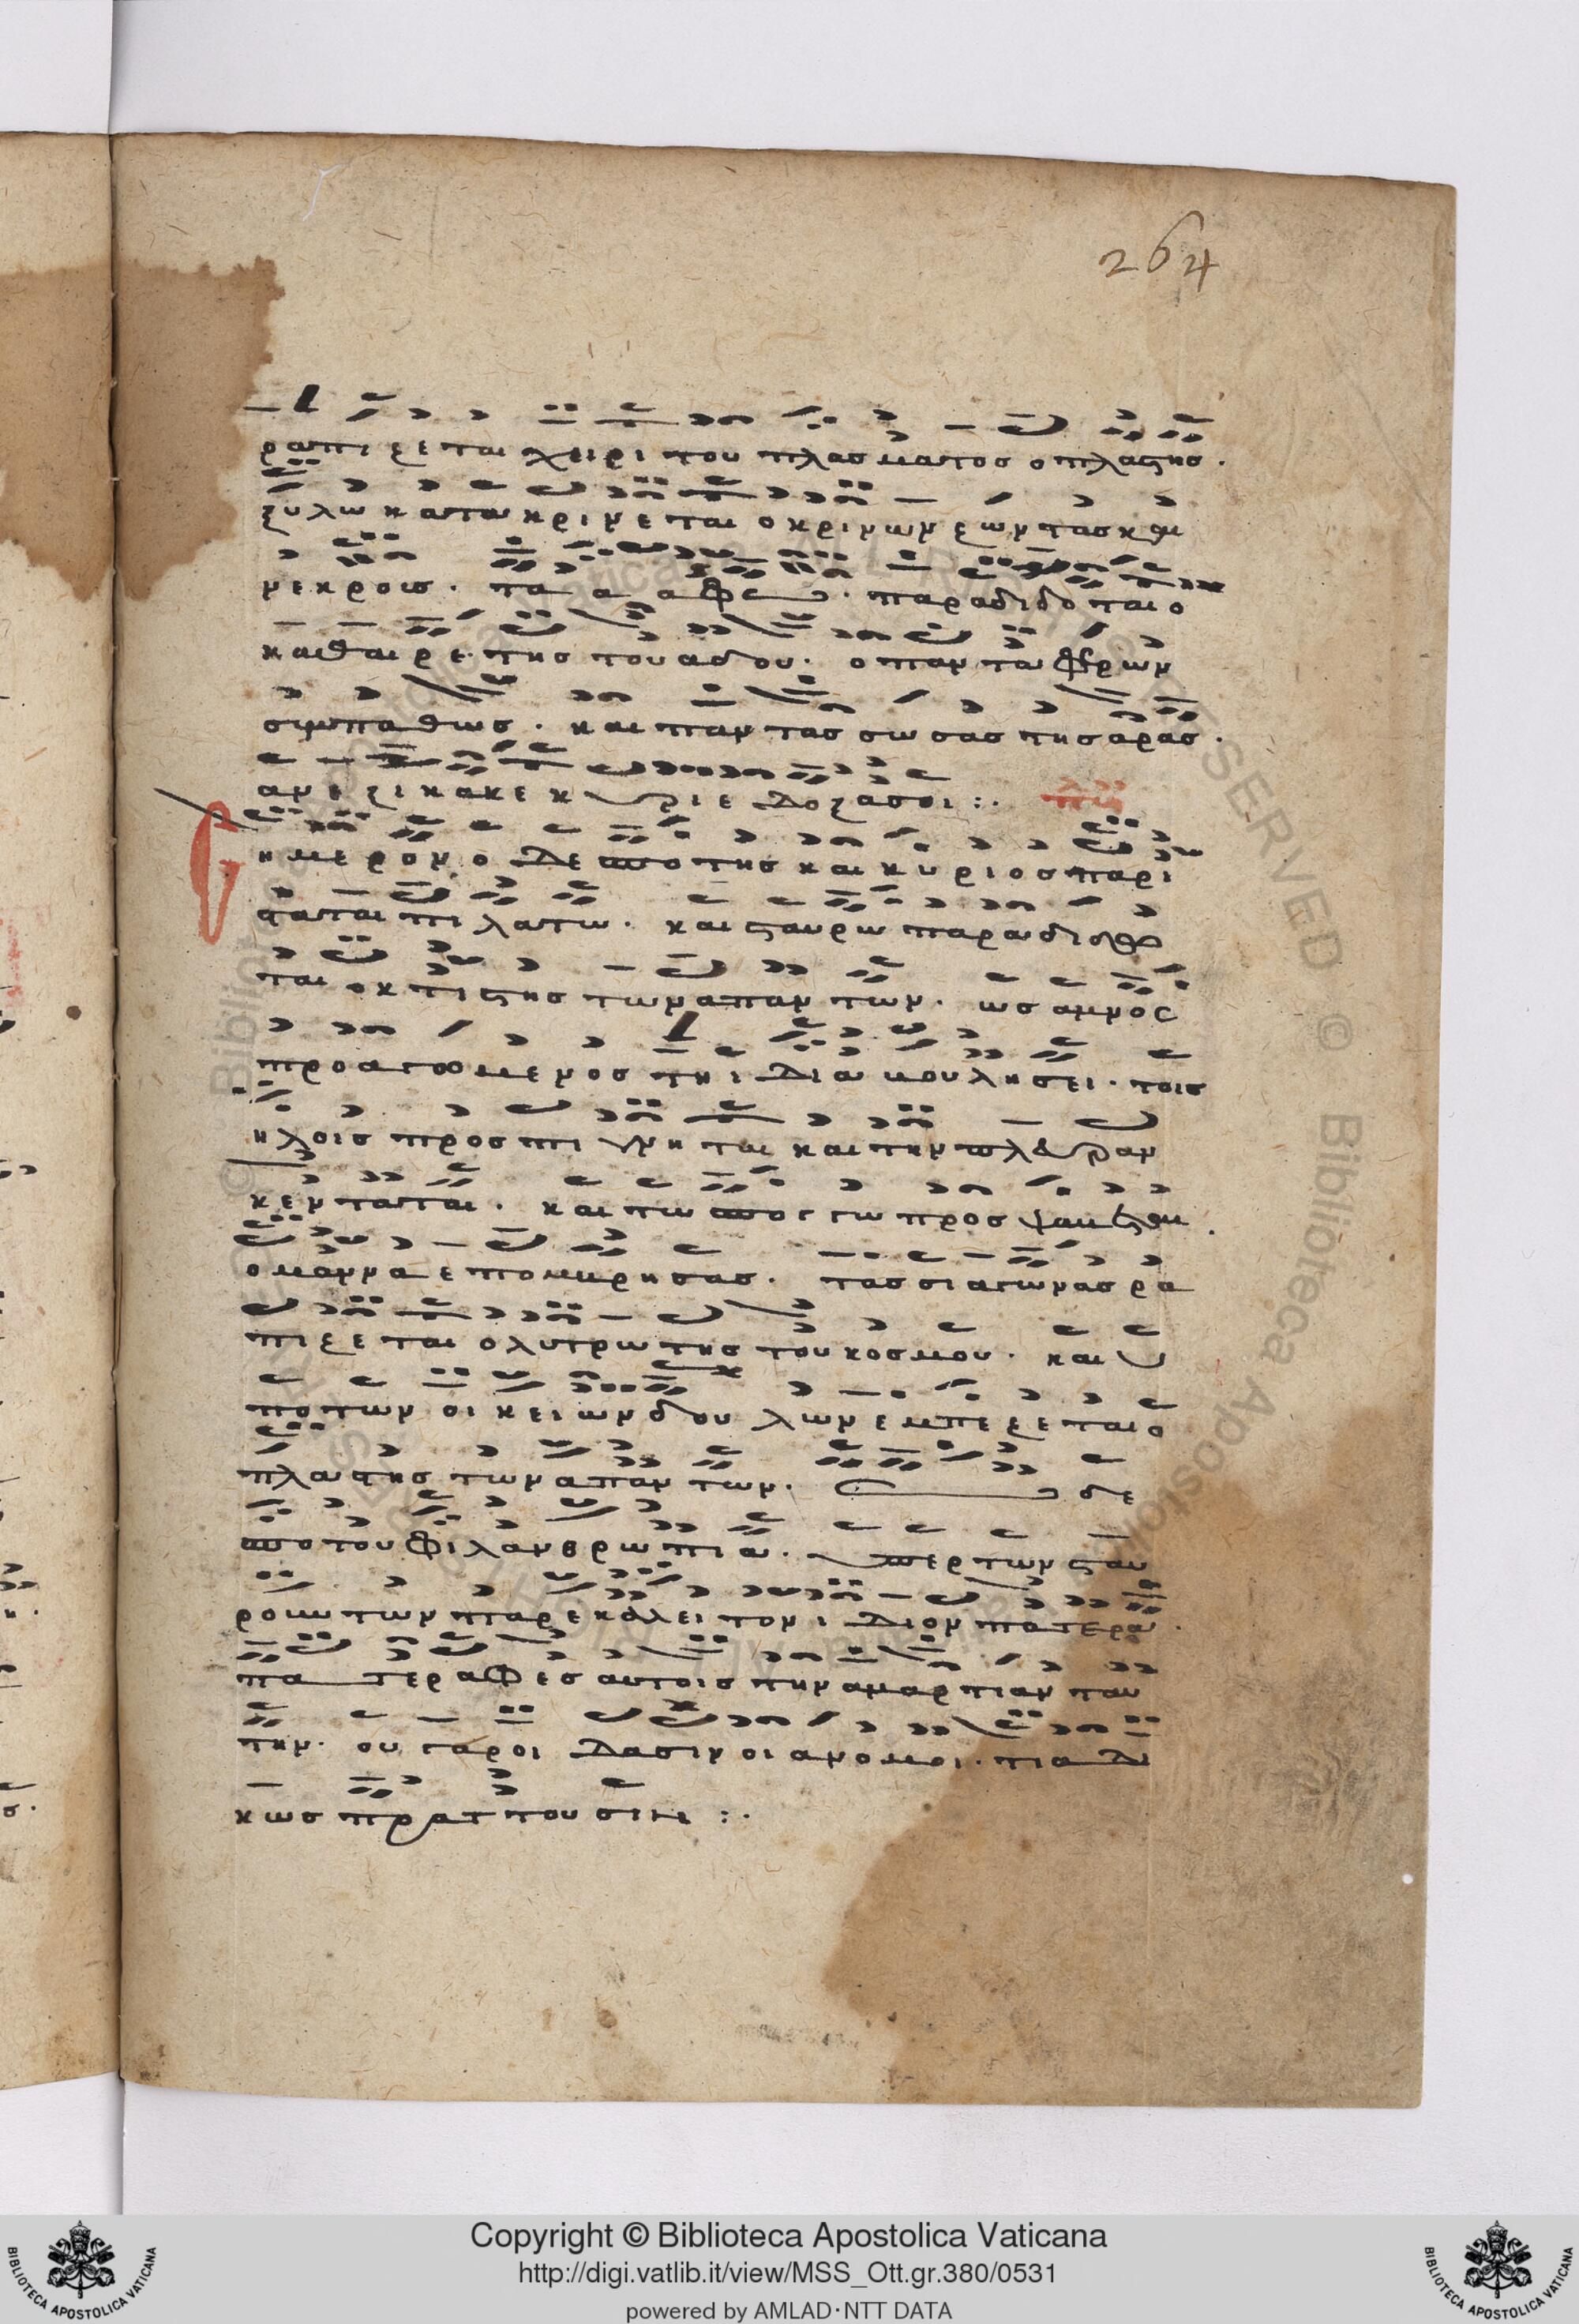 264
ραπιζεται χειρι του πλασματος ο πλαστης.
ξυλω κατακρινεται ο κρινων ζωντας και
νεκρους. τα α α φω. παραδιδοται ο
καθαιρετης του αδου. ο παντα φερων
συμπαθως. και παντας σωσας της αρας.
ανεξικακε κυριε δοξα σοι :.
ημερον ο δεσποτης και κυριος παρι
σταται πιλατω. και σταυρω παραδιδο
ται ο κτιστης των απαντων. ως αμνος
προσαγομενος τη ιδια βουλησει. τοις
ηλοις προσπηγνηται και την πλευραν
κενταται. και τω σπογγω προσψαυεται
ο μαννα επομβρησας. τας σιαγωνας ρα
πιζεται ο λυτρωτης του κοσμου. και υ
πο των οικειων δουλων εμπεζεται ο
πλαστης των απαντων. δε
σποτου φιλανθρωπια. υπερ των σταυ
ρουντων παρεκαλει τον ιδιον πατερα.
πα τερ αφες αυτοις την αμαρτιαν ταυ
την. ου γαρ οιδασιν οι ανομοι. τι αδι
κως πραττουσιν :.
Copyright © Biblioteca Apostolica Vaticana
http://digi.vatlib.it/view/MSS_Ott.gr.380/0531
powered by AMLAD·NTT DATA